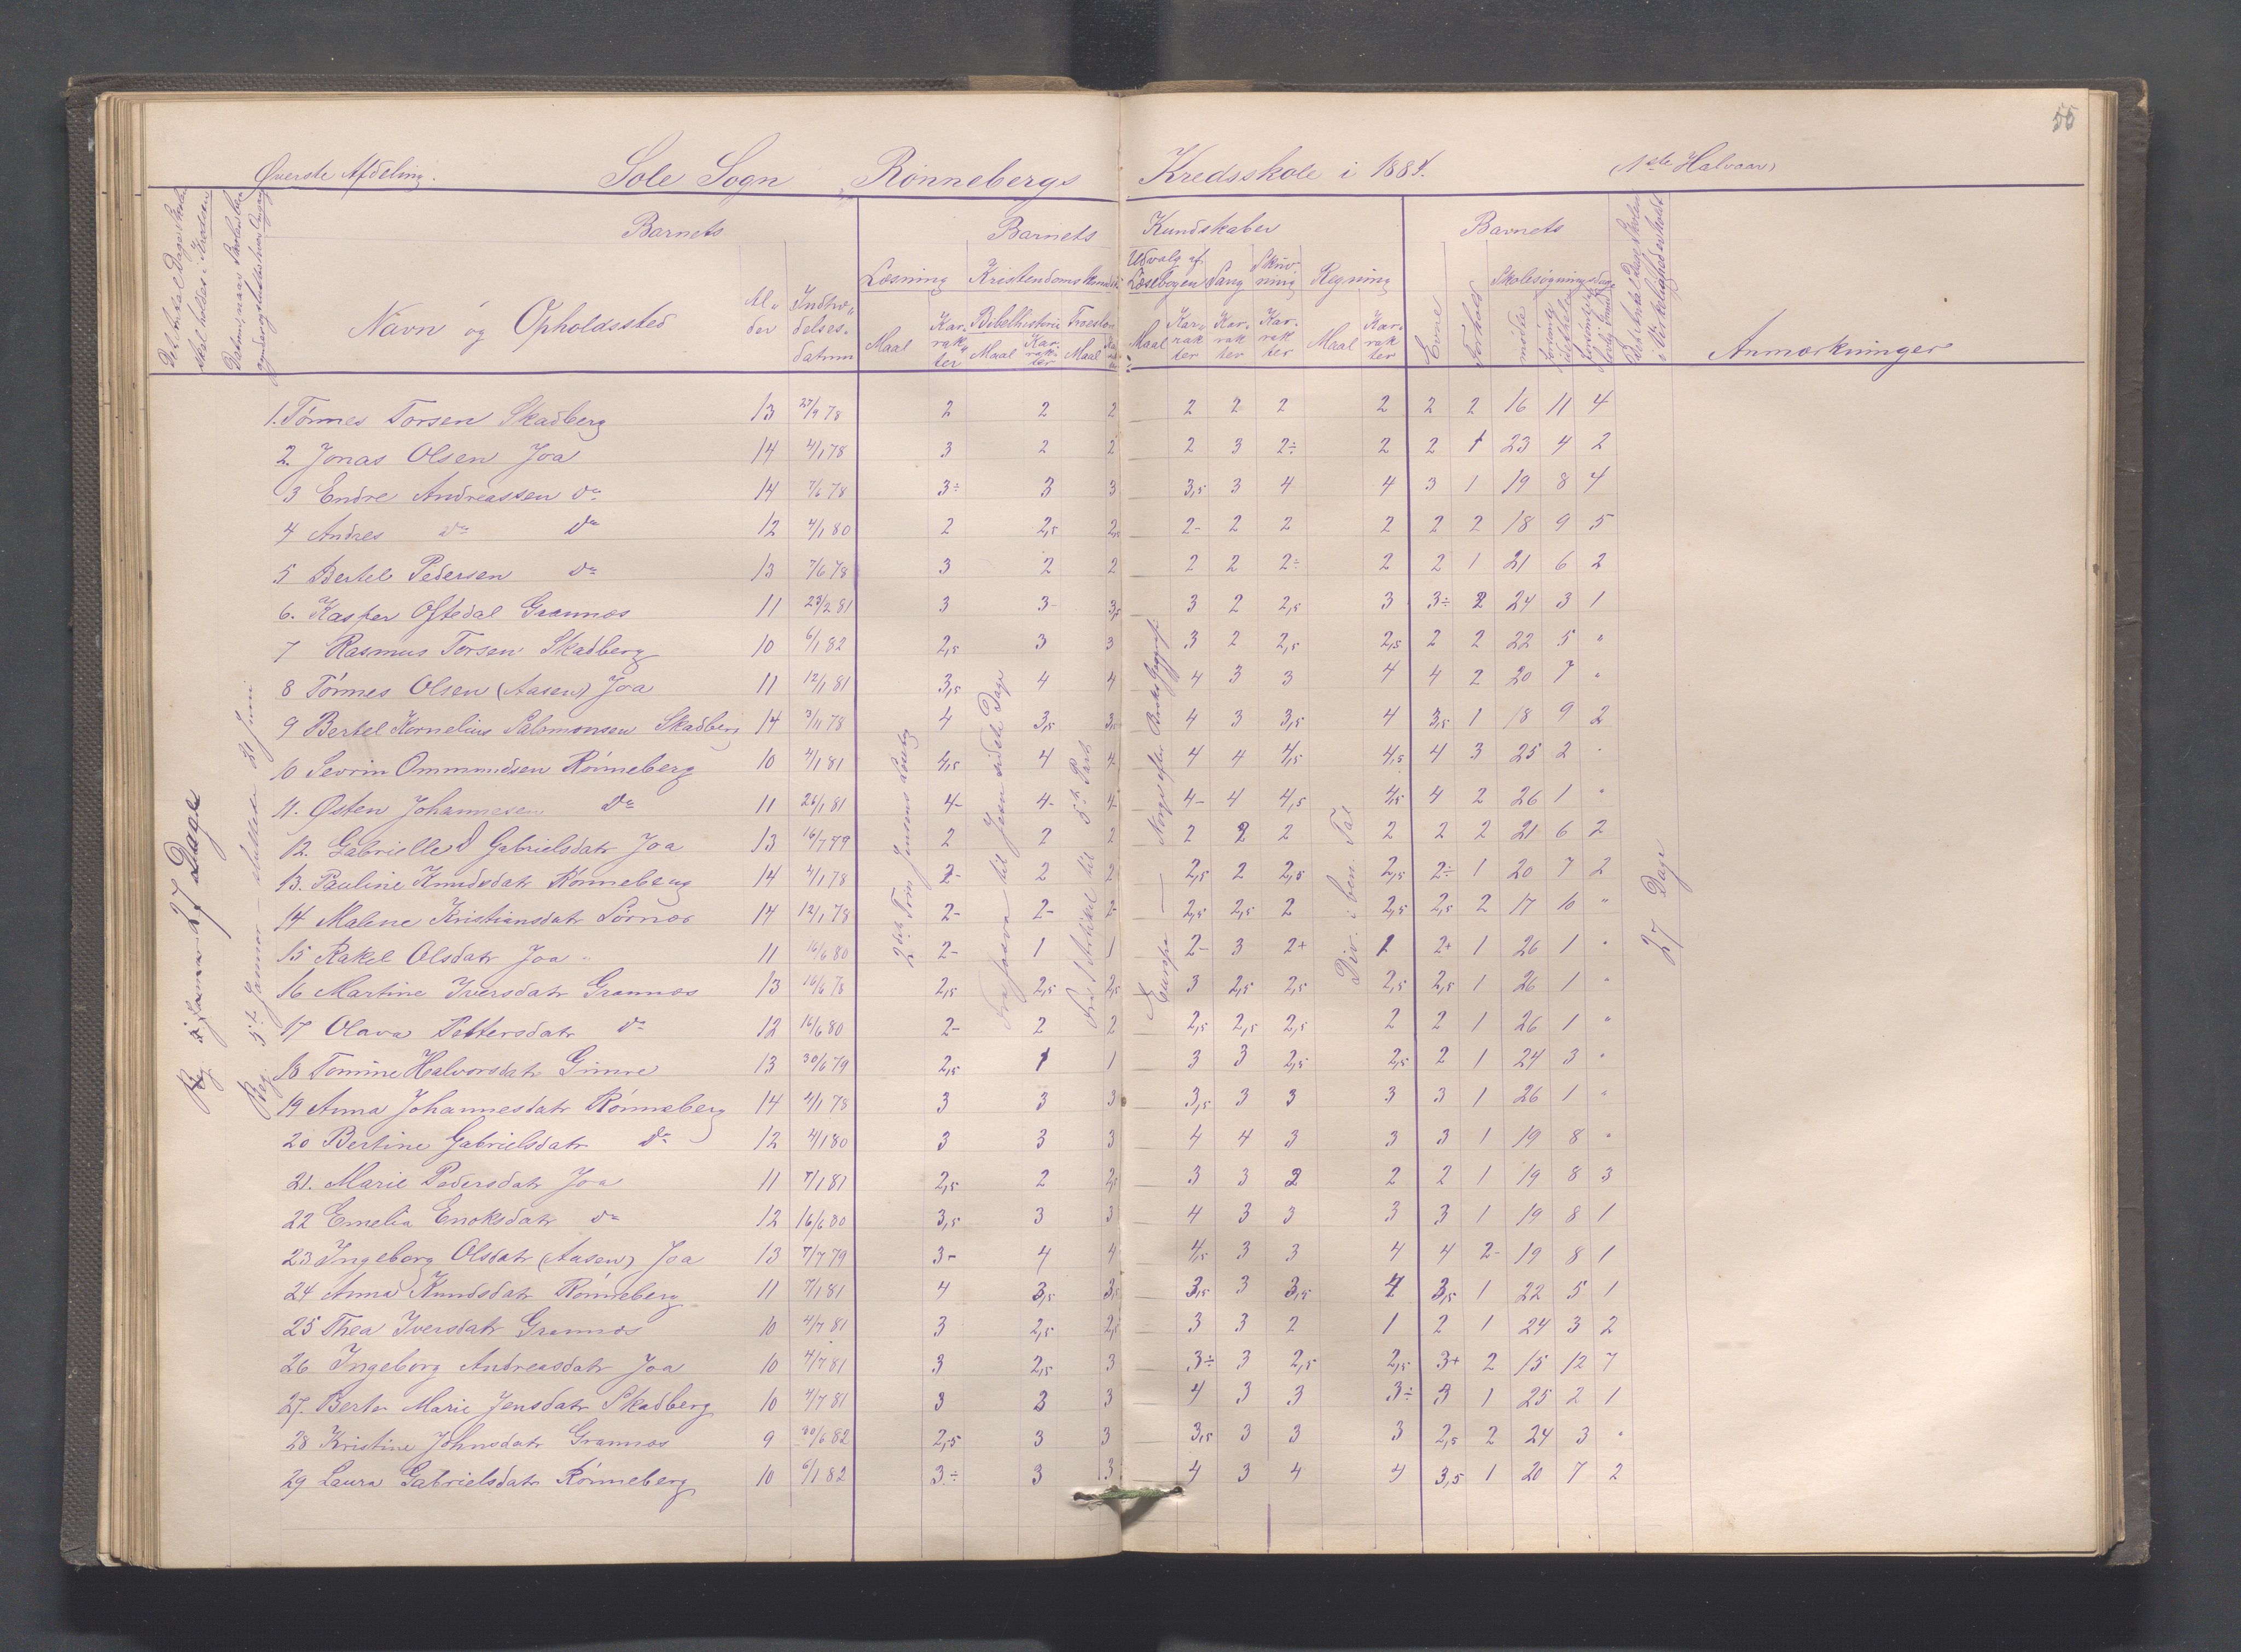 55
Øverste Afdeling. Sole Sogn Rönnebergs Kredsskole i 1884. 1ste Halvaar
Det Antal Dage Skole skal holdes i Kredsen
Barnets Barnets Kundskaber Barnets
Navn og Opholdssted Alder Indtrædelsesdatum
Læsning Kristendomskundsk Udvalg af Læsebogen Sang Skrivning Regning Evne Forhold Skolesøgningsdage
Maal Karrakter Bibelhistorie Troeslære Maal Karrakter Maal Maal Karrakter Karrakter Karrakter Maal Karrakter mödte forsömte Anmærkninger
1. Tönnes Torsen Skadberg 13 27/9 78 2 2 2 2 2 2 2 2 2 16 11 4
2. Jonas Olsen Joa 14 4/1 78 3 2 2 2 3 2÷ 2 2 1 23 4 2
3 Endre Andreassen do 14 7/6 78 3÷ 3 3 3,5 3 4 4 3 1 19 8 4
4 Andres do do 12 4/1 80 2 2,5 2,5 2- 2 2 2 2 2 18 9 5
5 Bertel Pedersen do 13 7/6 78 3 2 2 2 2 2÷ 2 2 1 21 6 2
6. Kasper Oftedal Grannes 11 23/2 81 3 3- 3,5 3 2 2,5 3 3÷ 2 24 3 1
7 Rasmus Torsen Skadberg 10 6/1 82 2,5 3 3 3 2 2,5 2,5 2 2 22 5 "
8 Tönnes Olsen (Aasen) Joa 11 12/1 81 3,5 4 4 4 3 3 4 4 2 20 7 "
9 Bertel Kornelius Salomonsen Skadberg 14 3/11 78 4 3,5 3,5 4 3 3,5 4 3,5 1 18 9 2
10 Sevrin Ommundsen Rönneberg 10 4/1 81 4,5 4 4 4 4 4,5 4,5 4 3 25 2 "
11. Østen Johannesen do 11 26/1 81 4- 4- 4- 4- 4 4,5 4,5 4 2 26 1 "
12. Gabrielle Gabrielsdatr Joa 13 16/7 79 2 2 2 2 2 2 2 2 2 21 6 2
13. Pauline Knudsdatr Rönneberg 14 4/1 78 2- 2 2 2,5 2 2,5 2,5 2÷ 1 20 7 2
14 Malene Kristiansdatr Sörnes 14 12/1 78 2- 2- 2- 2,5 2,5 2 2,5 2,5 2 17 10 "
15 Rakel Olsdatr Joa 11 16/6 80 2- 1 1 2- 3 2+ 1 2+ 1 26 1 "
16 Martine Iversdatr Grannes 13 16/6 78 2,5 2,5 2,5 3 2,5 2,5 2,5 2,5 1 26 1 "
17 Olava Pettersdatr do 12 16/6 80 2- 2 2 2,5 2,5 2,5 2 2 1 26 1 "
18 Tomine Halvorsdatr Gimre 13 30/6 79 2,5 1 1 3 3 2,5 2,5 2 1 24 3 "
19 Anna Johannesdatr Rönneberg 14 4/1 78 3 3 3 3,5 3 3 3 3 1 26 1 "
20 Bertine Gabrielsdatr do 12 4/1 80 3 3 3 4 4 3 3 3 1 19 8 "
21. Marie Pedersdatr Joa 11 7/1 81 2,5 2 2,5 3 3 2 2 2 1 19 8 3
22 Emelia Enoksdatr do 12 16/6 80 3,5 3 3 4 3 3 3 3 1 19 8 1
23 Ingeborg Olsdatr (Aasen) Joa 13 7/7 79 3- 4 4 4,5 3 3 4 4 2- 19 8 1
24 Anna Knudsdatr Rönneberg 11 7/1 81 4 3,5 3,5 3,5 3 3,5 4 3,5 1 22 5 1
25 Thea Iversdatr Grannes 10 4/7 81 3 2,5 2,5 3 3 2 1 2 1 24 3 2
26 Ingeborg Andreasdatr Joa 10 4/7 81 3 2,5 3 3÷ 3 2,5 2,5 3+ 2 15 12 7
27. Berte Marie Jensdatr Skadberg 10 4/7 81 3 3 3 4 3 3 3÷ 3 1 25 2 1
28 Kristine Johnsdatr Grannes 9 30/6 82 2,5 3 3 3,5 3 3 3 2,5 2 24 3 "
29 Laura Gabrielsdatr Rönneberg 10 6/1 82 3÷ 3 3 4 3 4 4 3,5 1 20 7 2
27 Dage
Beg. 5te Januar – sluttede 21 Juni
2det Trin Jensens Læseb
til Jesu sidste Dage
Fra 1 Artikel til 5te Part
Europa — Norge efter
Div. i ben. Tal
27 Dage